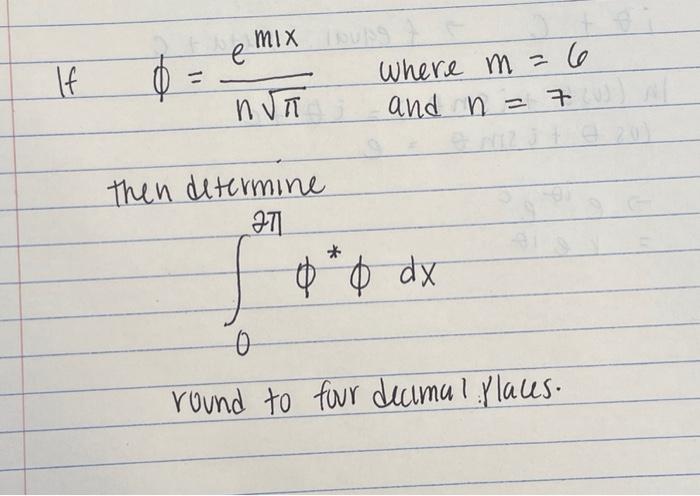 If ϕ = e^{mix} / n√π where m = 6
and n = 7
then determine
∫_0^{2π} ϕ*ϕ dx
round to four decimal places.